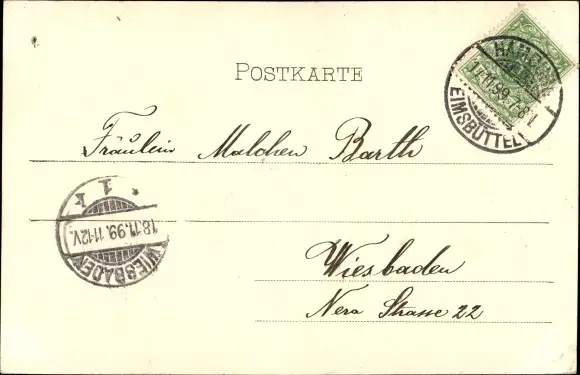 POSTKARTE
HAMBURG
17.11.99. 7-8N.
EIMSBÜTTEL
Fräulein Malchen Barth
* 1 k
18.11.99. 11-12V.
WIESBADEN
Wiesbaden
Nero Strasse 22